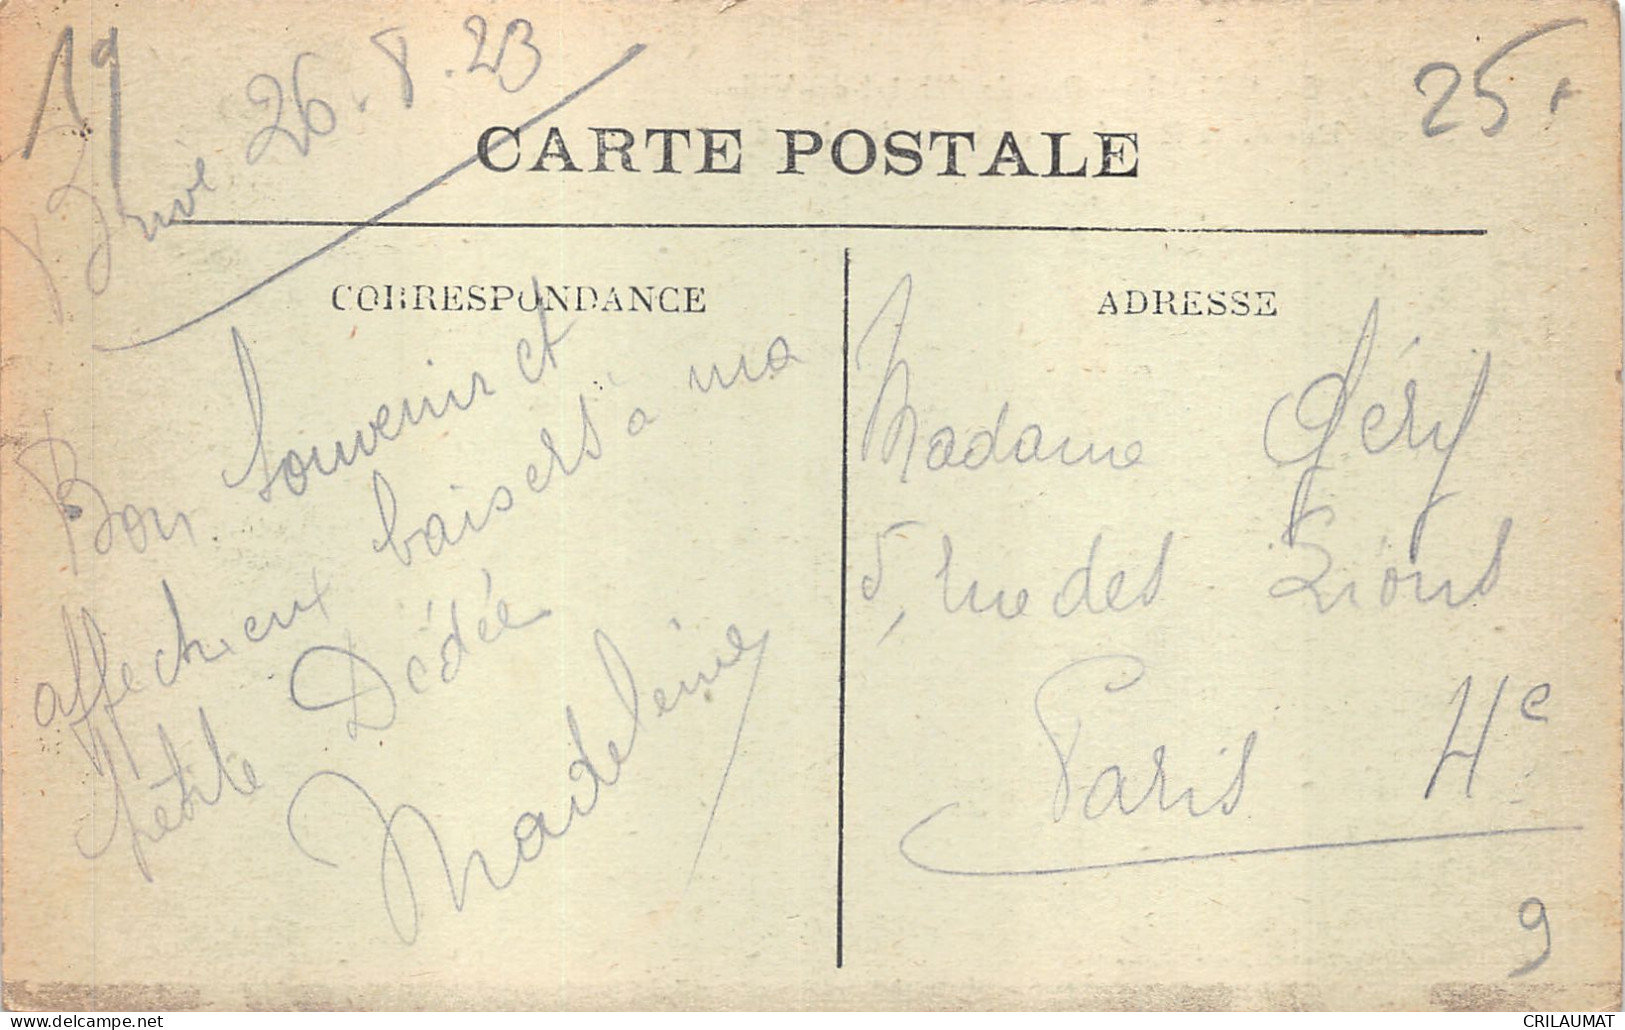 19
25
Brive 26.8.23
CARTE POSTALE
CORRESPONDANCE
Bon souvenir et
affectueux baisers à ma
petite Dédée
Madeleine
ADRESSE
Madame Géry
5, rue des Lions
Paris 4e
9
CRILAUMAT